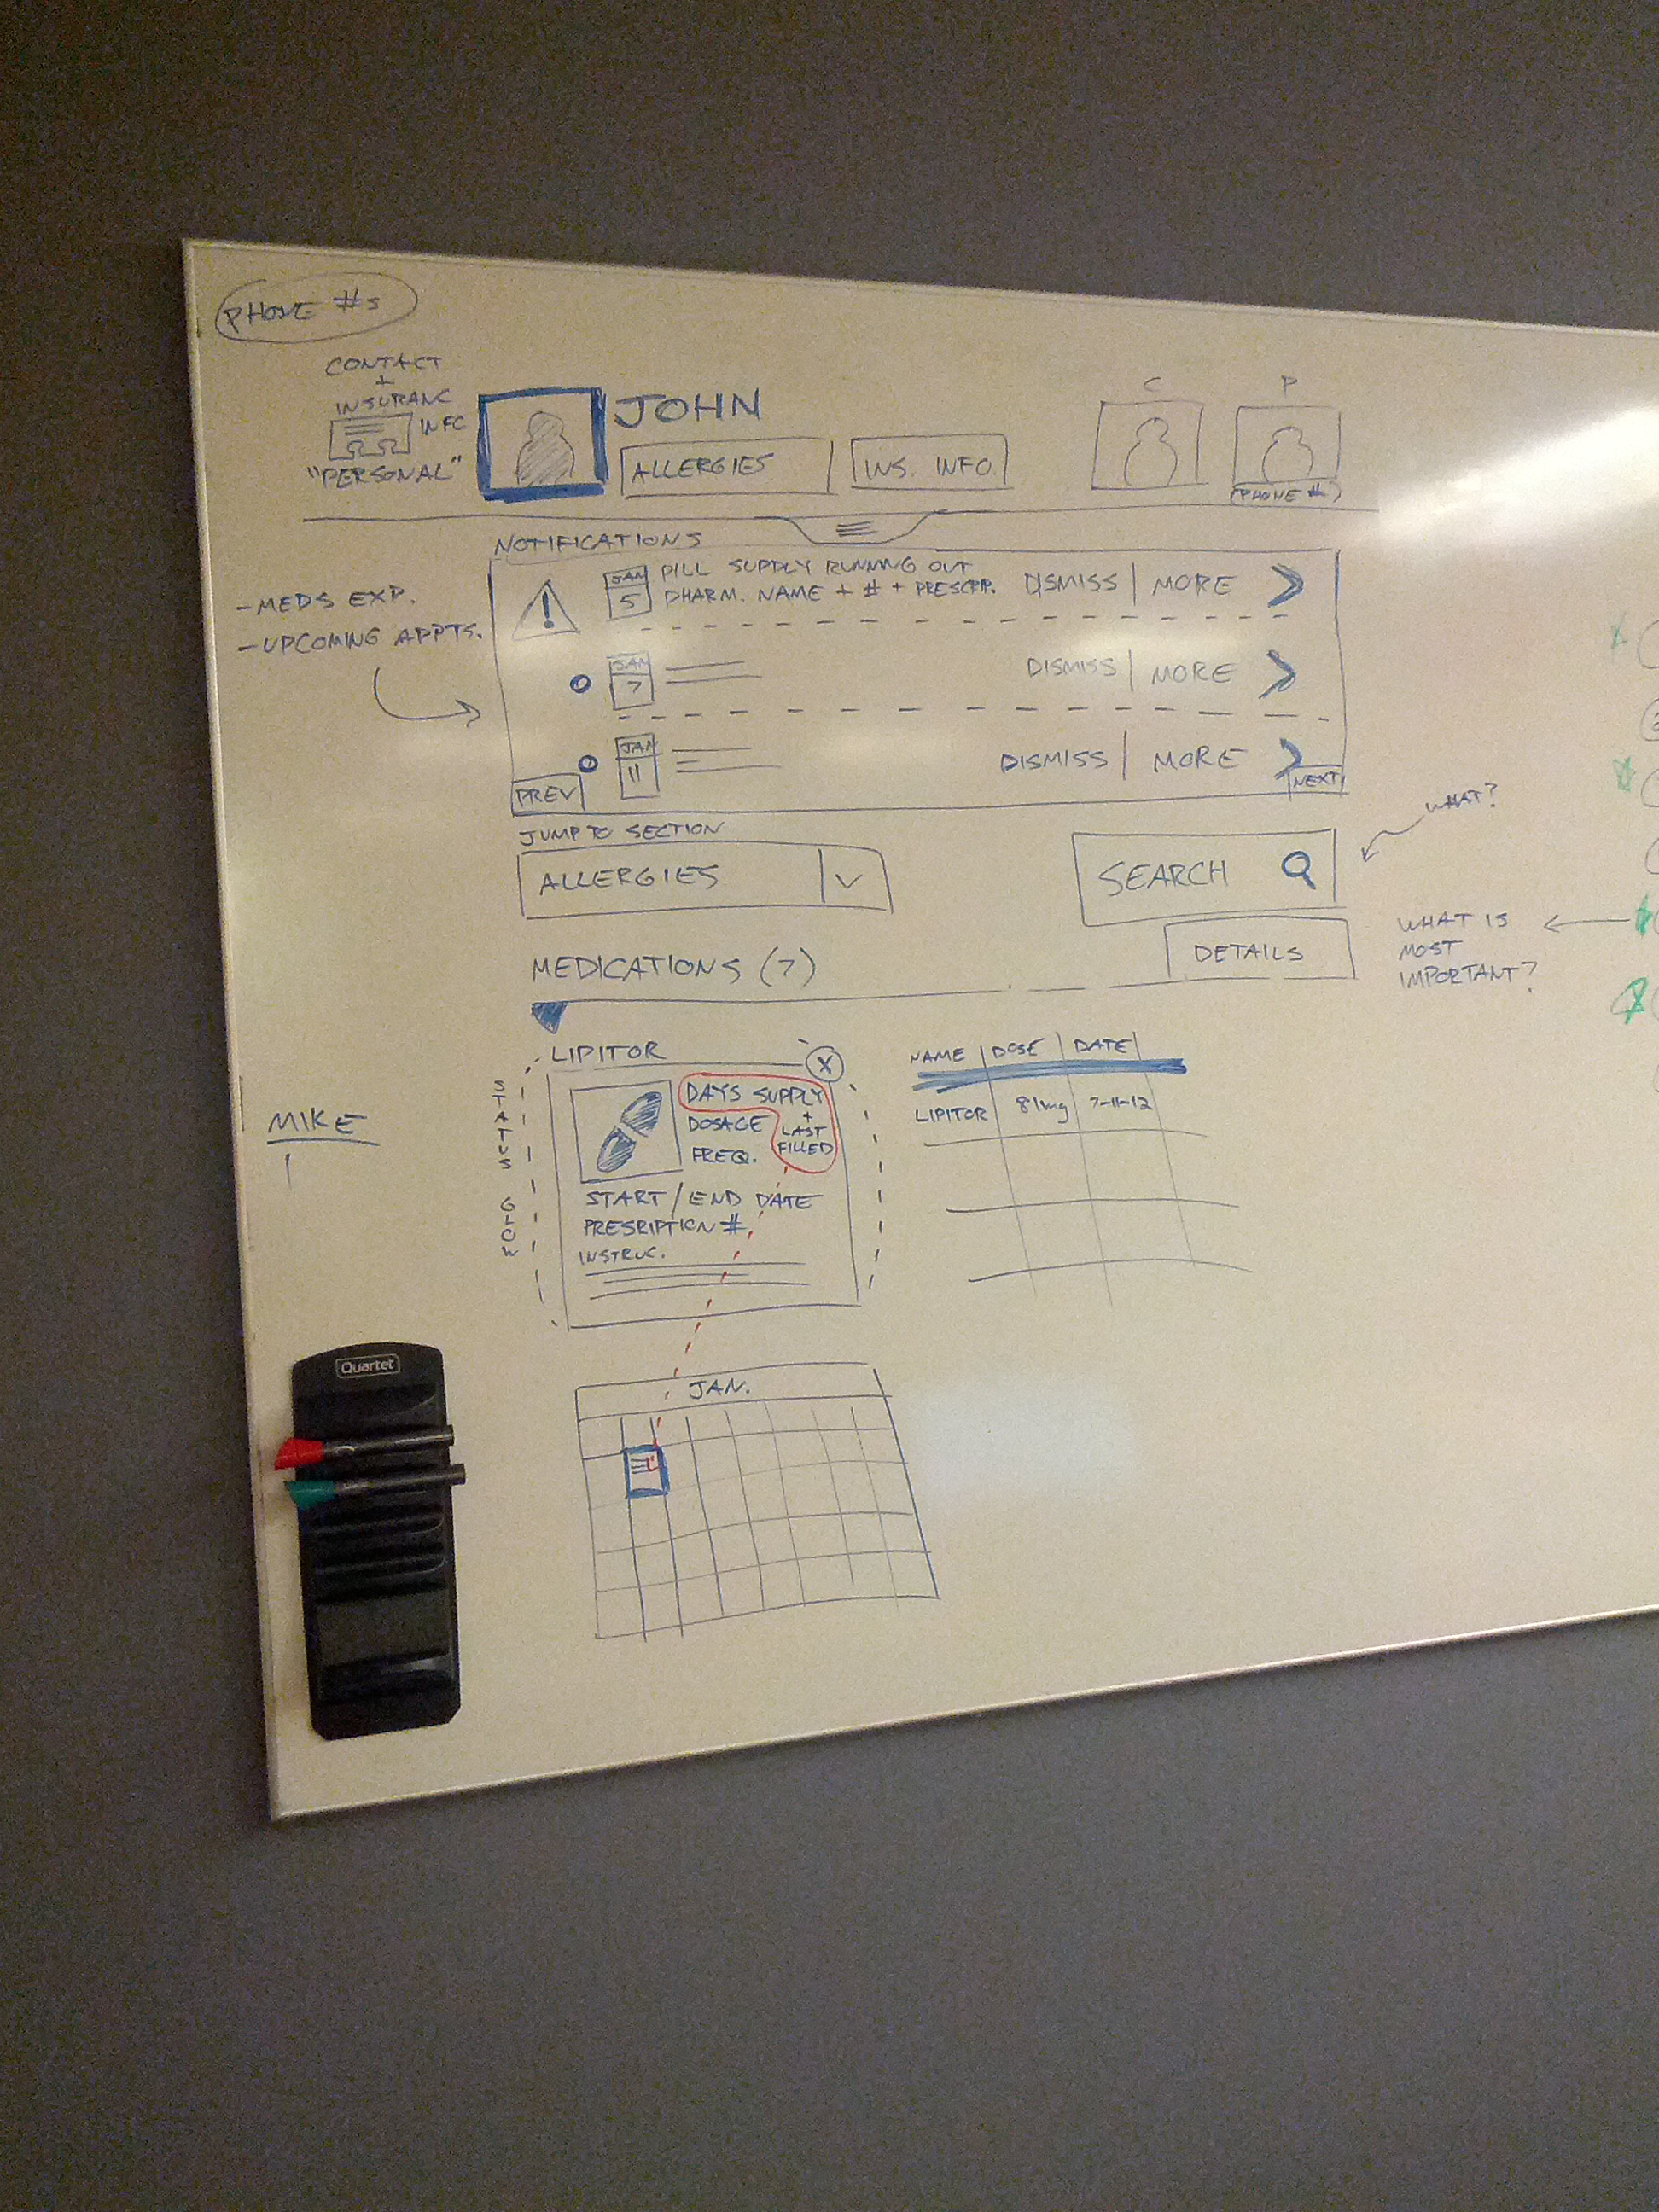 PHONE #s
CONTACT
+
INSURANC
INFO
"PERSONAL"
JOHN
ALLERGIES
INS. INFO.
C
P
(PHONE #)
NOTIFICATIONS
- MEDS EXP.
- UPCOMING APPTS.
JAN
5
PILL SUPPLY RUNNING OUT
PHARM. NAME + # + PRESCRIP.
DISMISS | MORE
JAN
7
DISMISS | MORE
JAN
11
DISMISS | MORE
PREV
NEXT
JUMP TO SECTION
ALLERGIES
SEARCH
WHAT?
MEDICATIONS (7)
DETAILS
WHAT IS
MOST
IMPORTANT?
STATUS GLOW
LIPITOR
X
DAYS SUPPLY
+
LAST
FILLED
DOSAGE
FREQ.
START / END DATE
PRESRIPTION #
INSTRUC.
NAME | DOSE | DATE
LIPITOR 81mg 7-11-12
MIKE
Quartet
JAN.